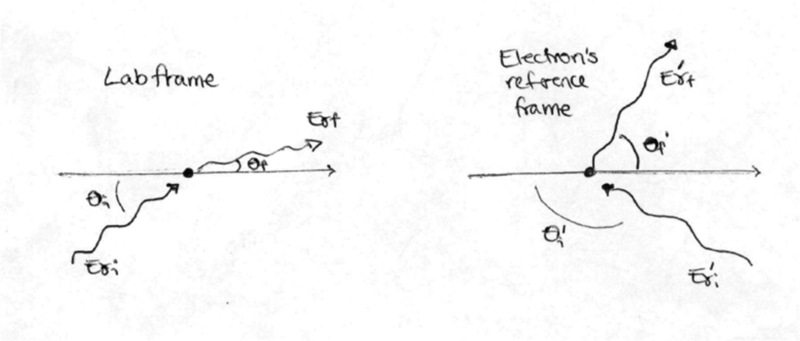 Lab frame
Eγf
θf
θi
Eγi
Electron's
reference
frame
E'γf
θf'
θi'
Eγi'